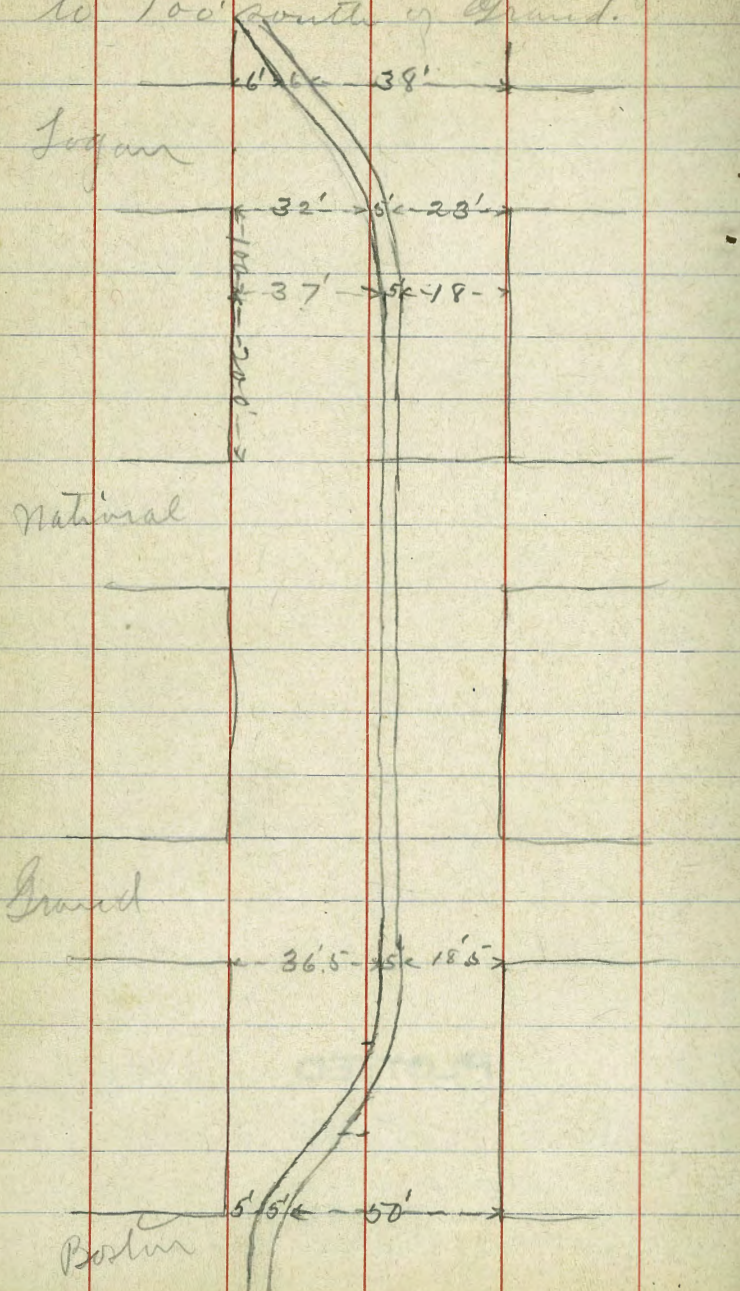 to 700' south of Grand.
6' 6 38'
Logan
32' 5' 23'
100
37' 5' 18
200'
National
Grand
36.5 5' 18'5
5' 5' 50'
Boston